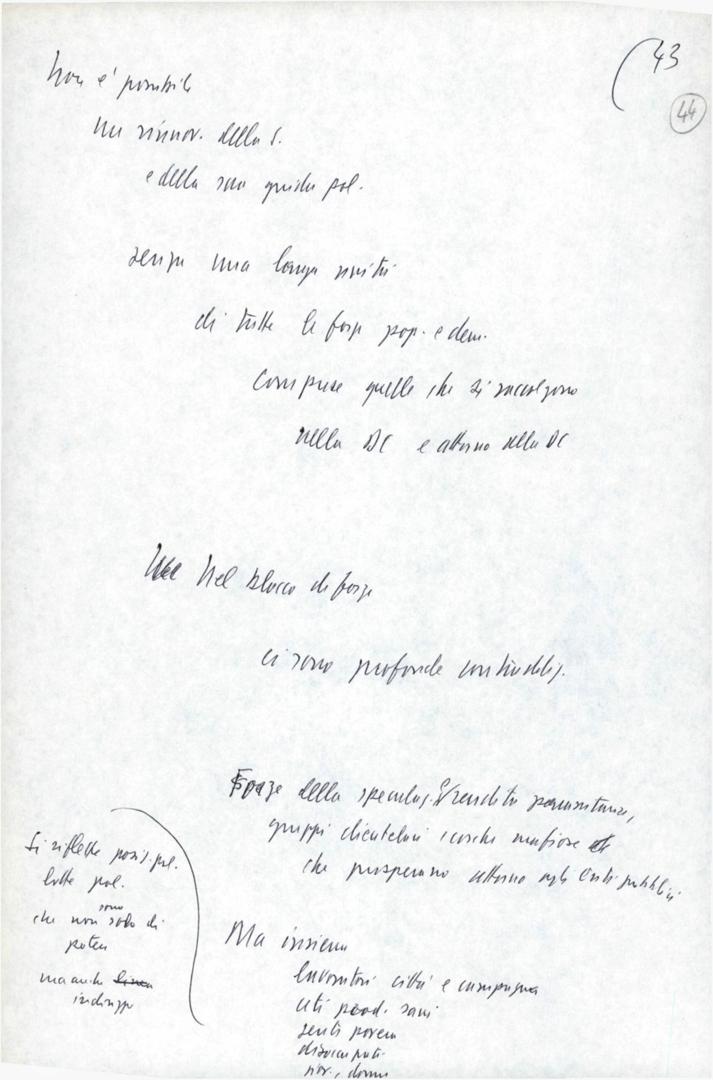 43
44
Non è possibile
un rinnov. della S.
e della sua guida pol.
senza una larga unità
di tutte le forze pop. e dem.
comprese quelle che si raccolgono
nella DC e attorno alla DC
Nel blocco di forze
ci sono profonde contraddiz.
Forze della speculaz. rendita parassitaria,
gruppi clientelari cosche mafiose
che prosperano attorno agli Enti pubblici
Si riflette posiz. pol.
lotte pol.
che non sono solo di
potere
ma anche linea
indirizzo
Ma insieme
lavoratori città e campagna
ceti prod. sani
gente povera
disoccupati
giov., donne